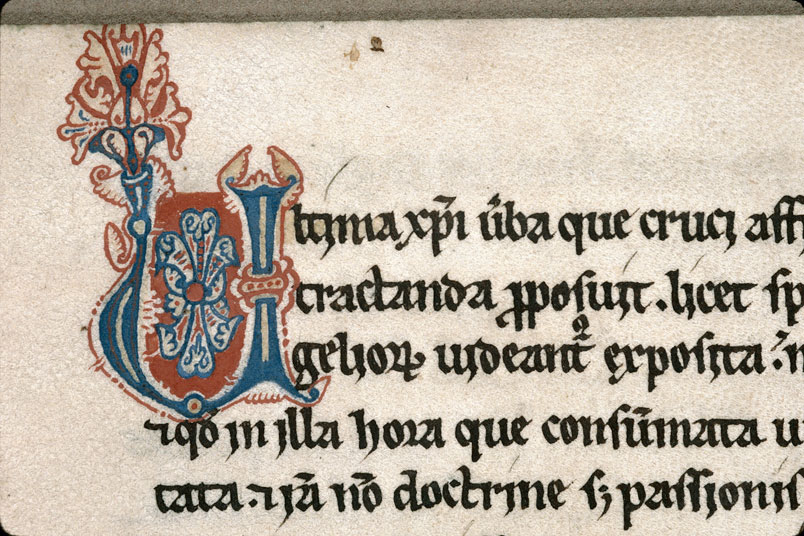 Vltima xp̄i ūba que cruci affi
tractanda ꝓposuit. licet sp
geliorꝝ uideant᷑ exposita. n
⁊ qđ in illa hora que consūmata u
tata. ⁊ iā nō doctrine sꝫ passionis